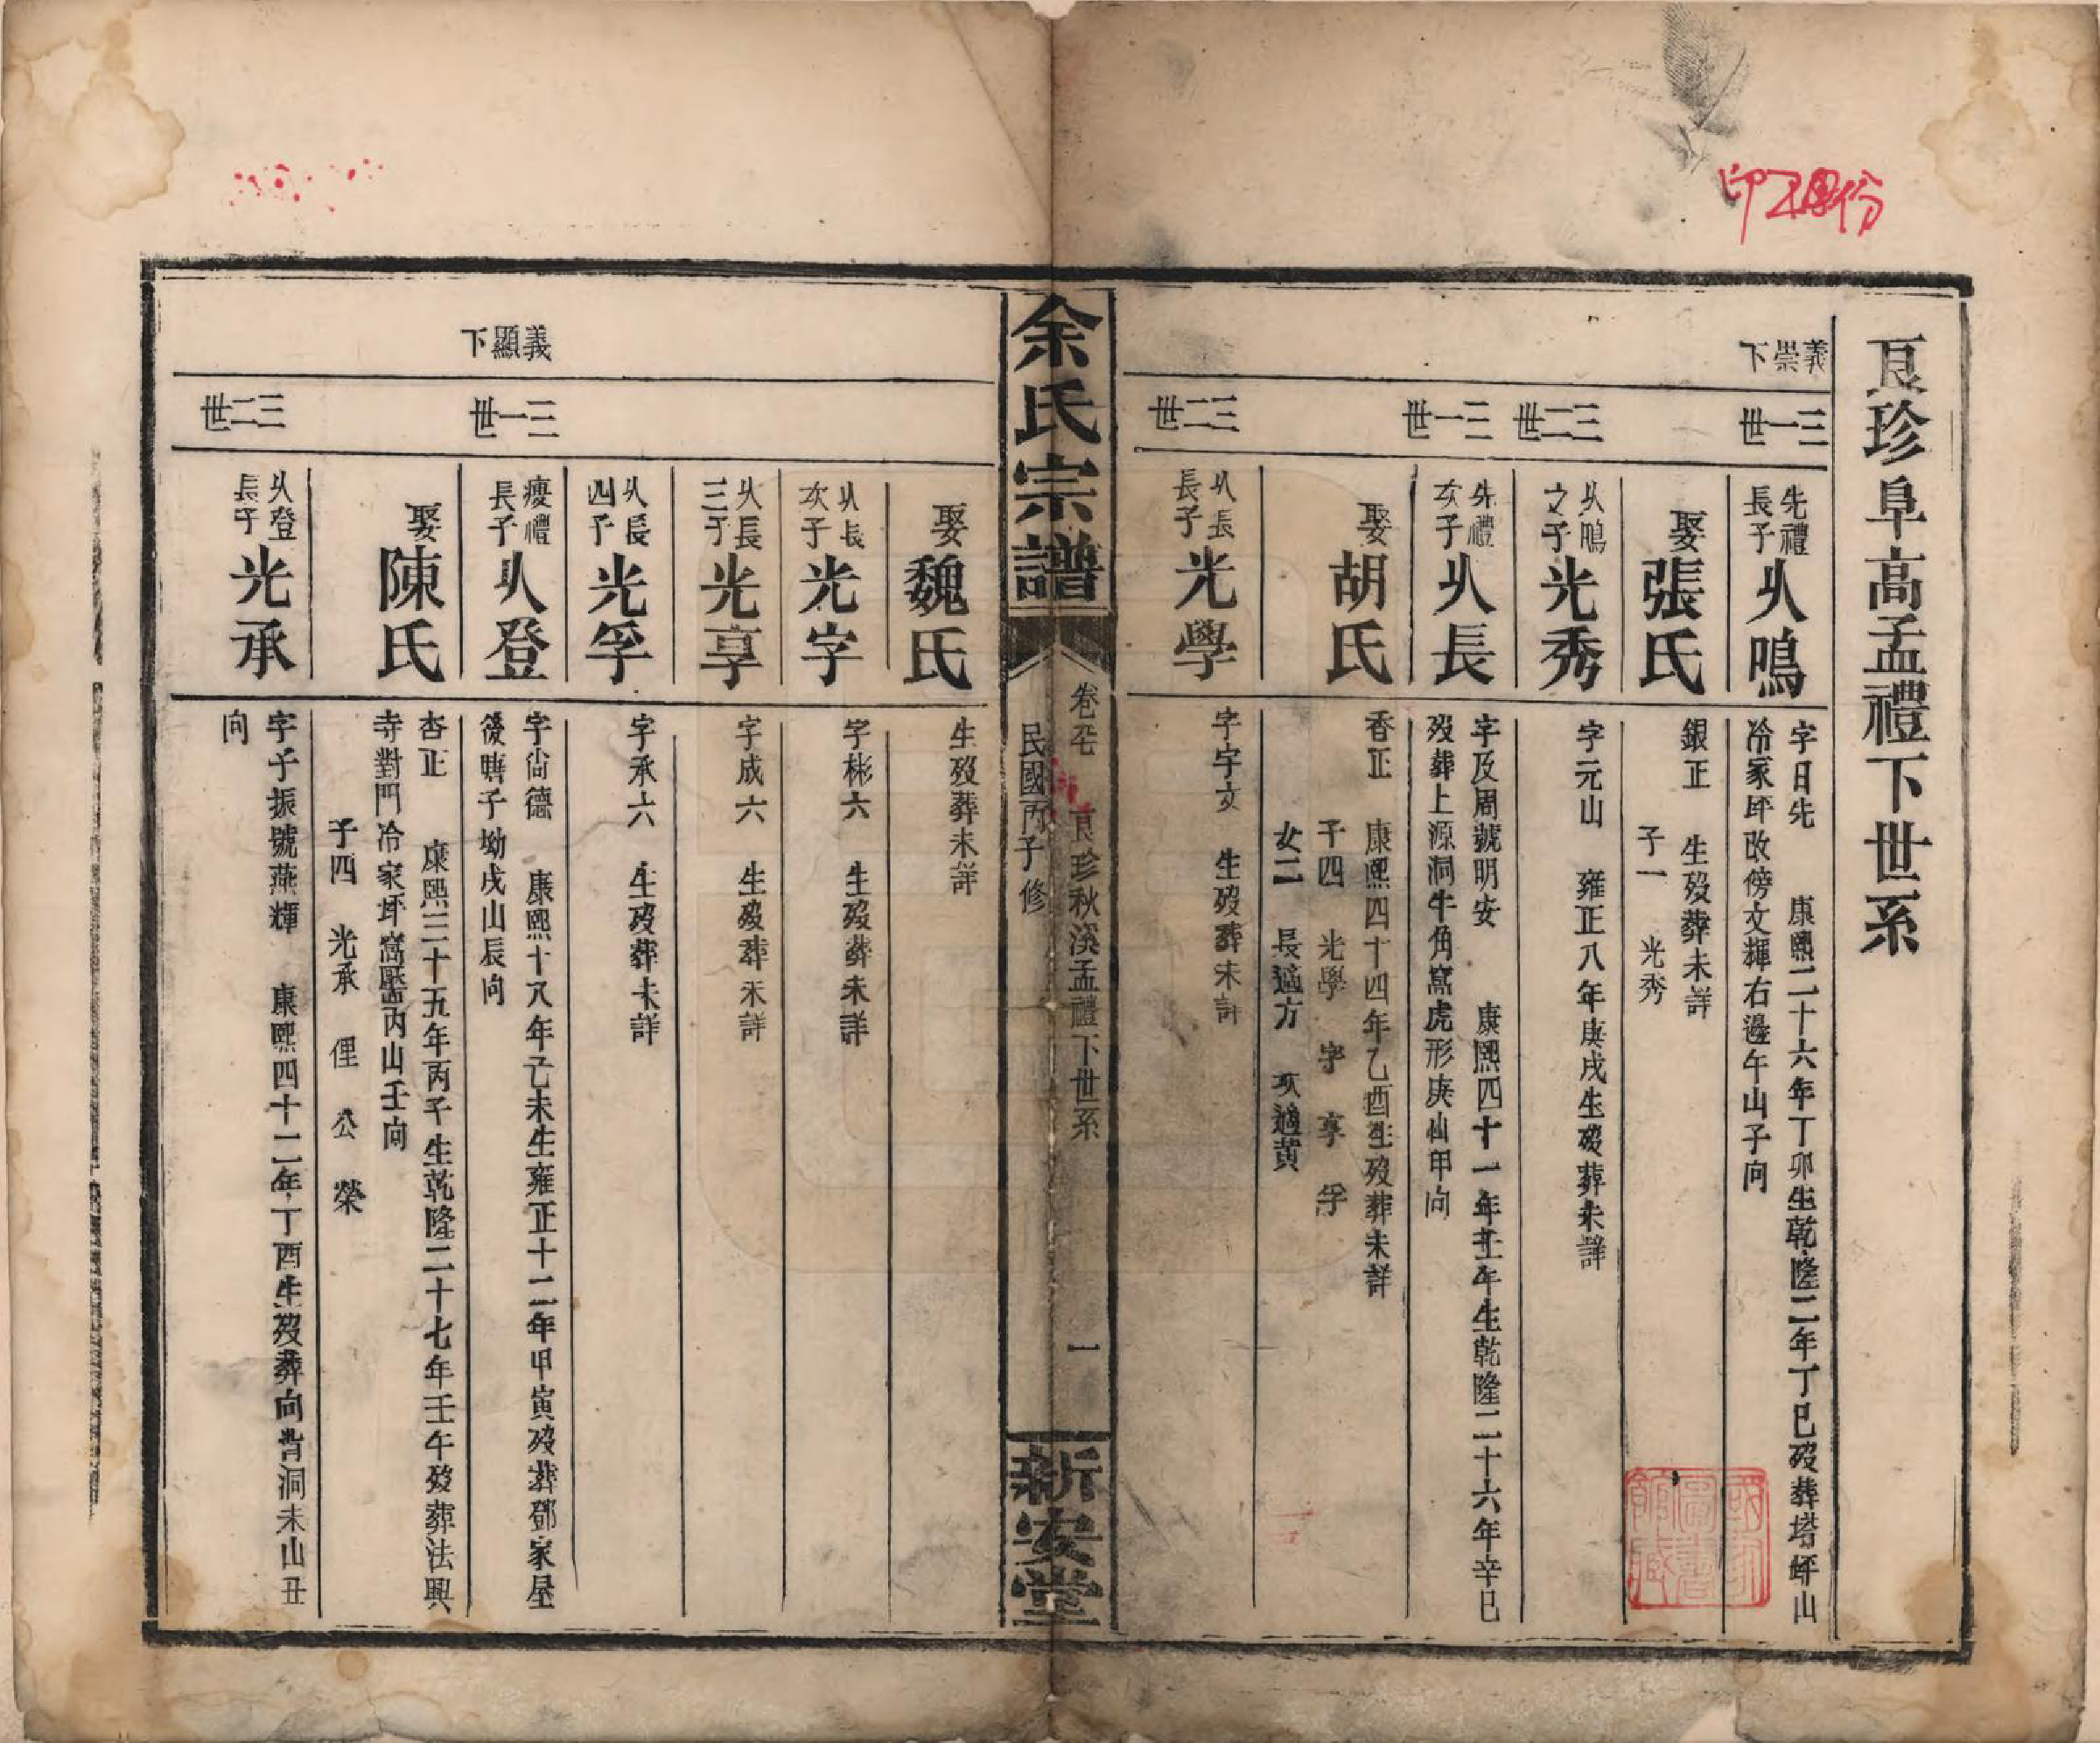 印20份
良珍阜高孟禮下世系
義崇下
三一世
先禮長子
乆鳴
字日先 康熙二十六年丁卯生乾隆二年丁巳歿葬塔坪山
冷家坪改傍文輝右邊午山子向
娶
張氏
銀正 生歿葬未詳
子一 光秀
三二世
乆鳴之子
光秀
字元山 雍正八年庚戌生歿葬未詳
三一世
先禮次子
乆長
字及周號明安 康熙四十一年壬午生乾隆二十六年辛巳
歿葬上源洞牛角窩虎形庚山甲向
娶
胡氏
香正 康熙四十四年乙酉生歿葬未詳
子四 光學 字 享 孚
女二 長適方 次適黃
三二世
乆長長子
光學
字字文 生歿葬未詳
余氏宗譜
卷 良珍秋溪孟禮下世系 一
民國丙子修
新安堂
娶
魏氏
生歿葬未詳
乆長次子
光字
字彬六 生歿葬未詳
乆長三子
光享
字成六 生歿葬未詳
乆長四子
光孚
字承六 生歿葬未詳
義顯下
三一世
慶禮長子
乆登
字尙德 康熙十八年己未生雍正十二年甲寅歿葬鄧家屋
後曉子坳戌山辰向
娶
陳氏
杏正 康熙三十五年丙子生乾隆二十七年壬午歿葬法興
寺對門冷家坪窩壓丙山壬向
子四 光承 俚 公 榮
三二世
乆登長子
光承
字子振號燕輝 康熙四十二年丁酉生歿葬向背洞未山丑
向